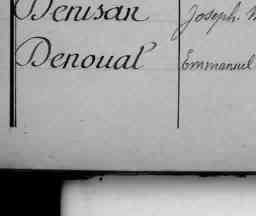 Denisan Joseph. M
Denoual Emmanuel